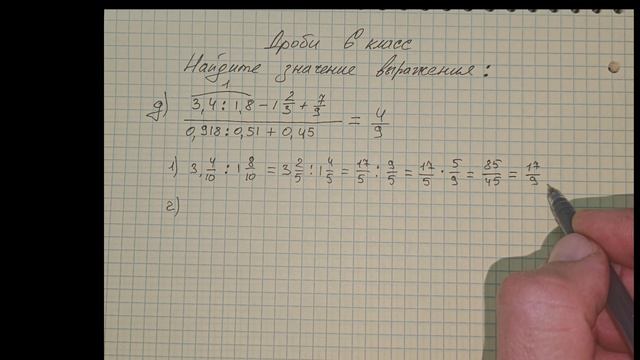 Дроби 6 класс
Найдите значение выражения:
1
д) (3,4 : 1,8 - 1 2/3 + 7/9) / (0,918 : 0,51 + 0,45) = 4/9
1) 3, 4/10 : 1 8/10 = 3 2/5 : 1 4/5 = 17/5 : 9/5 = 17/5 · 5/9 = 85/45 = 17/9
2)